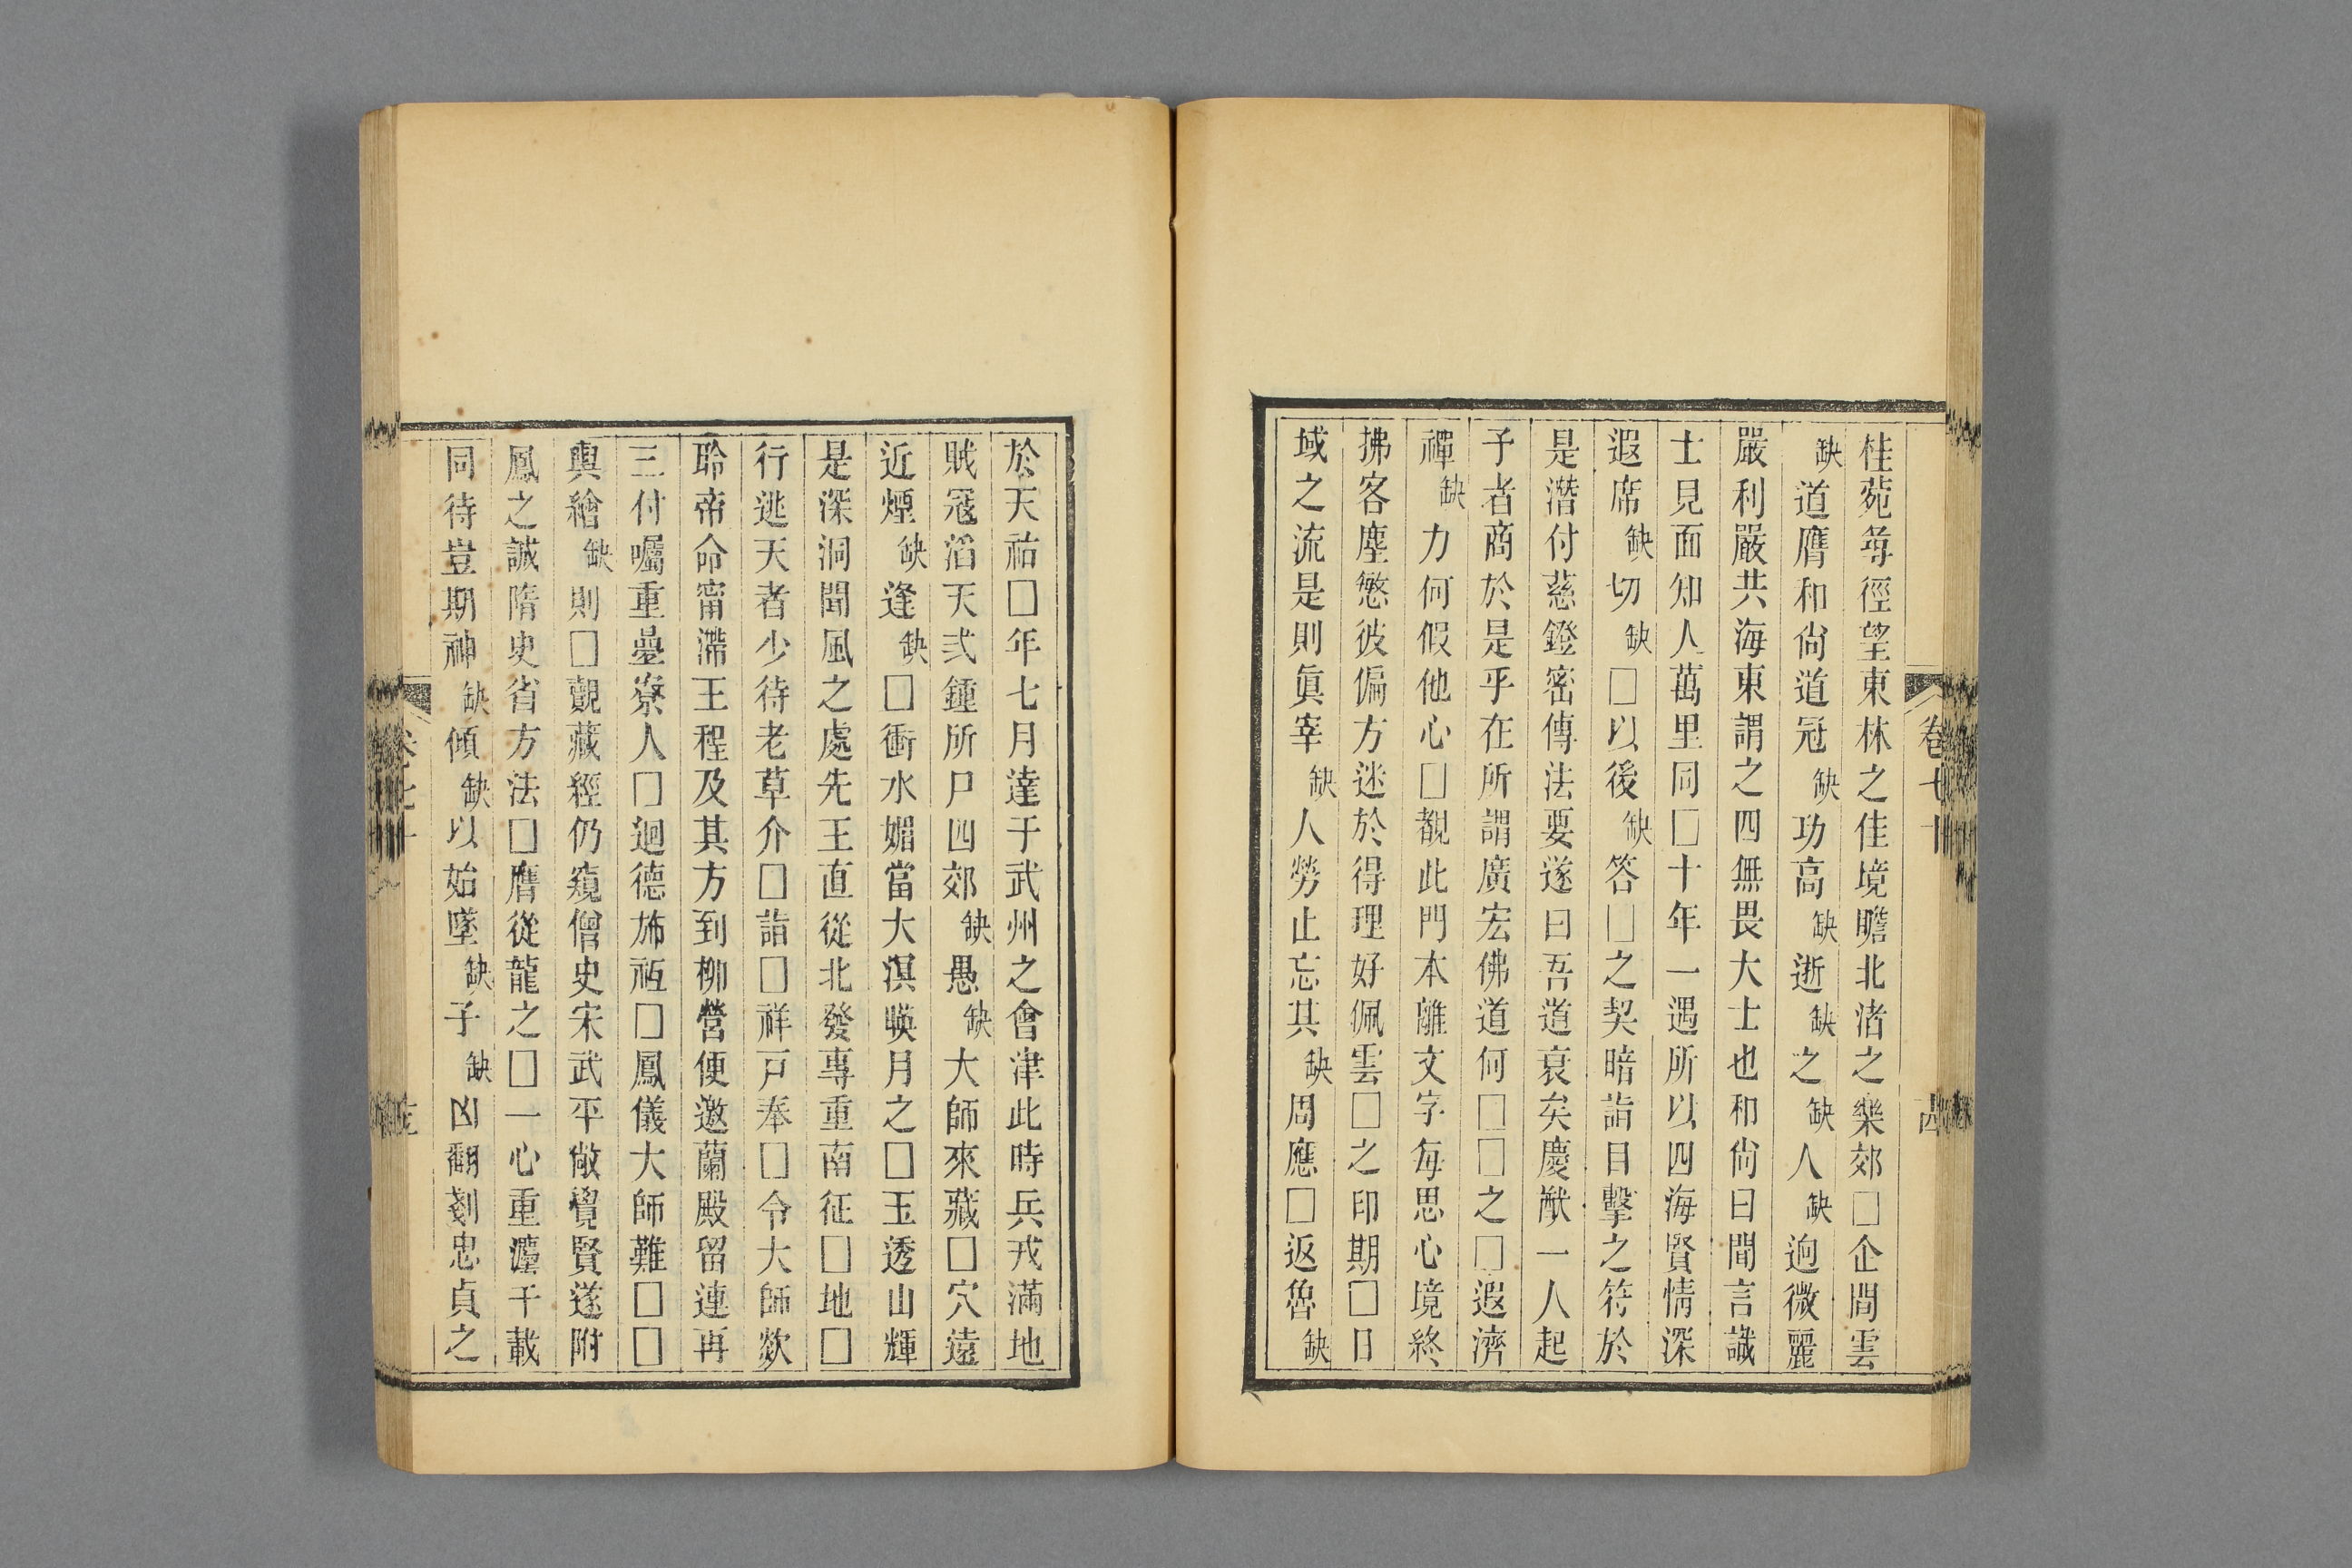 桂菀尋徑望東林之佳境瞻北渚之樂郊□企間雲
缺道膺和尚道冠缺功高缺逝缺之缺人缺迥微麗
嚴利嚴共海東謂之四無畏大士也和尚曰間言識
士見面知人萬里同□十年一遇所以四海賢情深
遐席缺切缺□以後缺答□之契暗詣目擊之符於
是潛付慈鐙密傳法要遂曰吾道衰矣慶猷一人起
予者商於是乎在所謂廣宏佛道何□□之□遐濟
禪缺力何假他心□覩此門本離文字每思心境終
拂客塵慜彼偏方迷於得理好佩雲□之印期□日
域之流是則眞宰缺人勞止忘其缺周應□返魯缺
卷七十
於天祐□年七月達于武州之會津此時兵戎滿地
賊寇滔天弎鍾所尸四郊缺愚缺大師來藏□穴遠
近煙缺逢缺□衝水媚當大溟暎月之□玉透山輝
是深洞聞風之處先王直從北發專重南征□地□
行逃天者少待老草介□詣□祥戸奉□令大師欻
聆帝命甯滯王程及其方到柳營便邀蘭殿留連再
三付囑重疊寮人□迴德施袛□鳳儀大師難□□
輿繪缺則□覿藏經仍窺僧史宋武平敵覺賢遂附
鳳之誠隋史省方法□膺從龍之□一心重瀍千載
同待豈期神缺傾缺以始墜缺子缺凶翻剗忠貞之